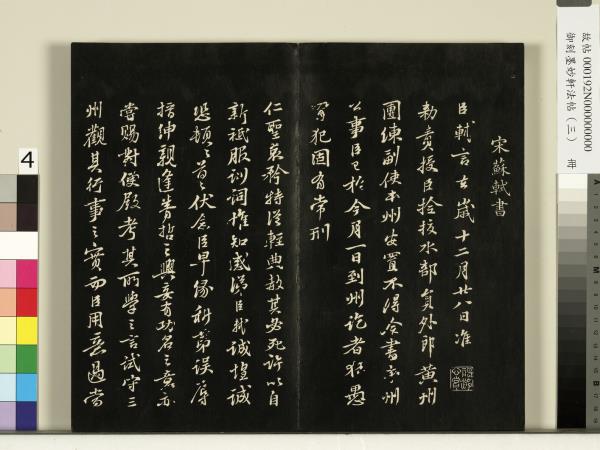 故帖 000192N000000000
御刻墨妙軒法帖(三) 冊
宋蘇軾書
臣軾言去歲十二月廿八日准
勅責授臣撿校水部員外郎黃州
團練副使本州安置不得僉書本州
公事臣已於今月一日到州訖者狂愚
冒犯固有常刑
仁聖哀矜特從輕典赦其必死許以自
新祗服訓詞惟知感涕臣軾誠惶誠
恐頓首頓首伏念臣早緣科第誤辱
搢紳親逢睿哲之興妄有功名之意亦
嘗賜對便殿考其所學之言試守三
州觀其行事之實而臣用意過當
4